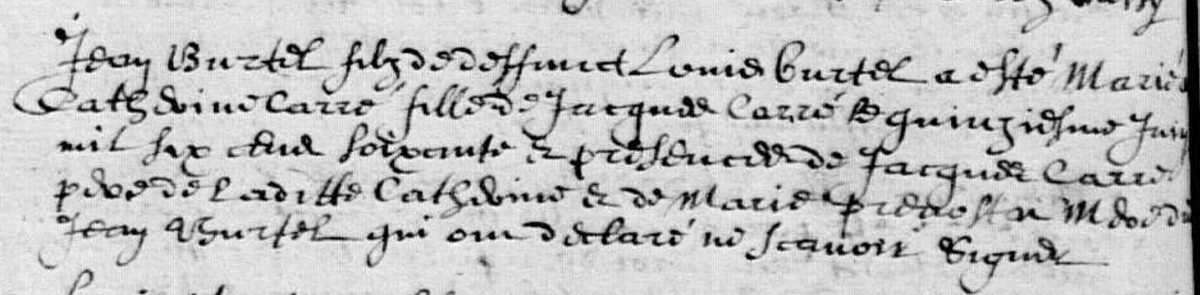 Jean Burtel filz de deffunct Louis burtel a esté Marié
Catherine Carré fille de Jacques Carré le quinziesme Juin
mil six cens soixante & presences de Jacques Carré
pere de Laditte Catherine & de Marie prevost Mere du
Jean Burtel qui ont declaré ne scavoir Signer